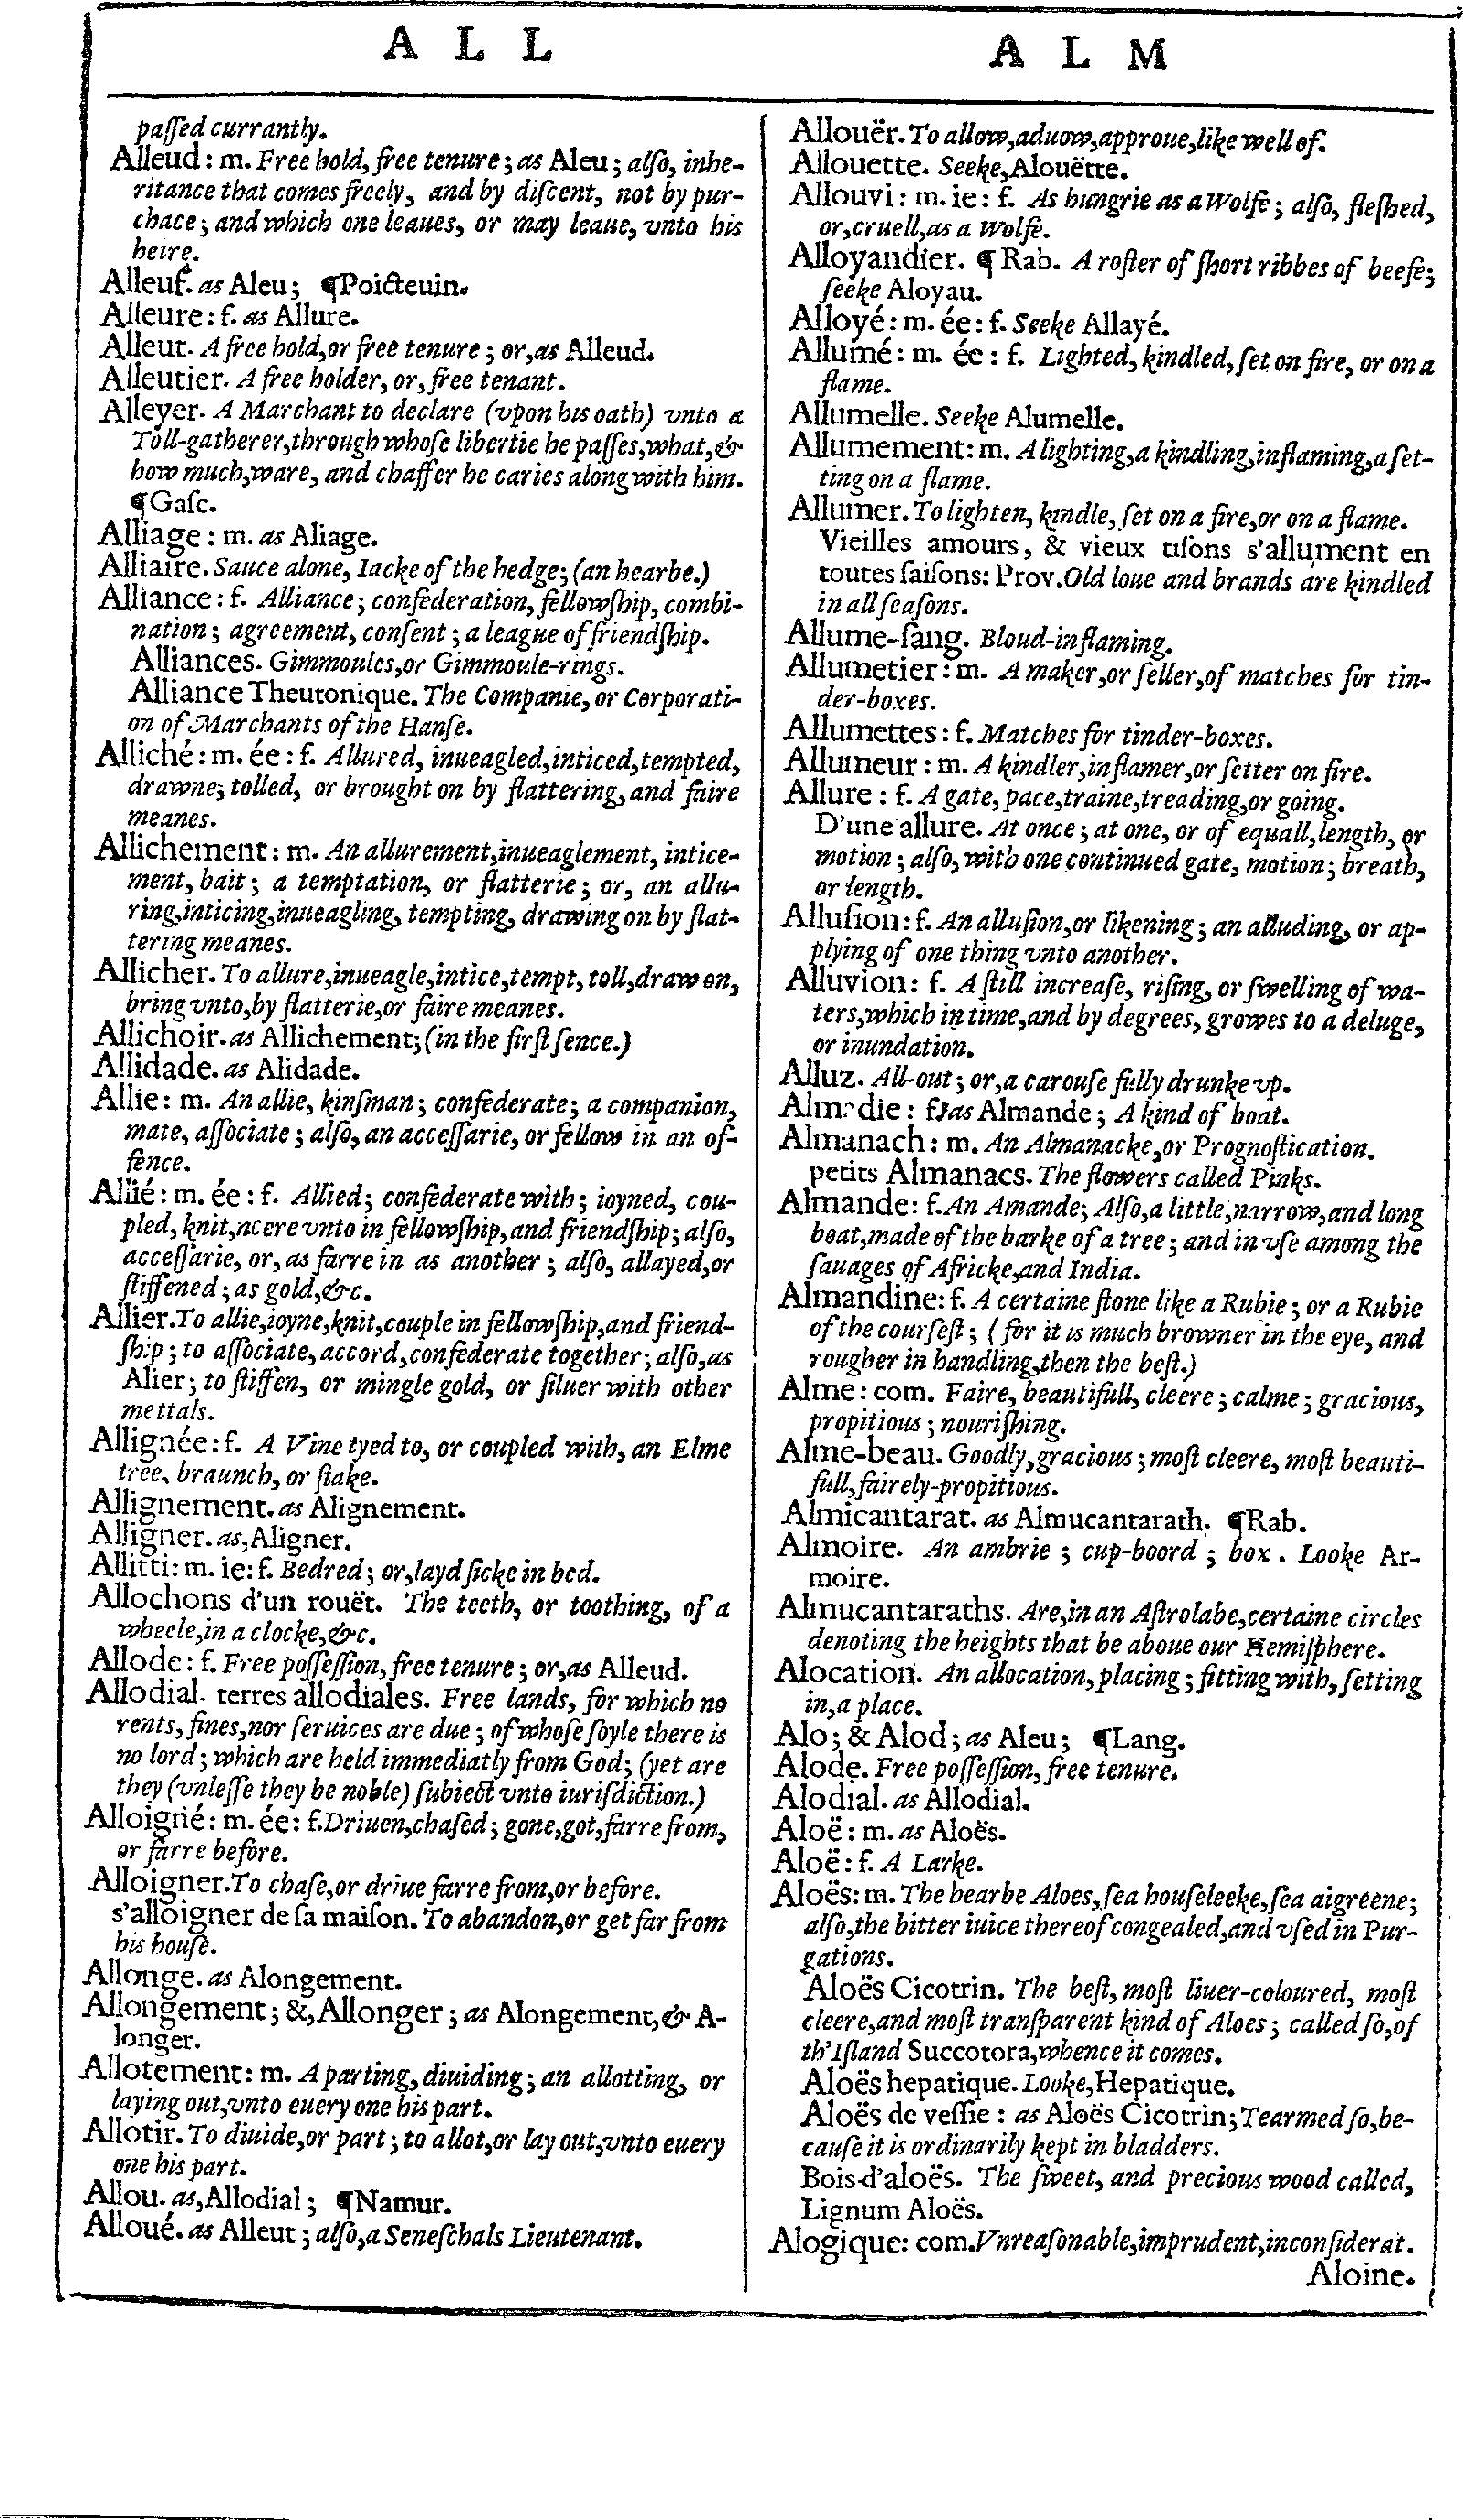 A L L
A L M
paſſed currantly.
Alleud: m. Free hold, free tenure; as Aleu; alſo, inhe-
ritance that comes freely, and by diſcent, not by pur-
chace; and which one leaues, or may leaue, vnto his
heire.
Alleuf. as Aleu; ¶Poicteuin.
Alleure: f. as Allure.
Alleut. A free hold, or free tenure; or, as Alleud.
Alleutier. A free holder, or, free tenant.
Alleyer. A Marchant to declare (vpon his oath) vnto a
Toll-gatherer, through whoſe libertie he paſſes, what, &
how much, ware, and chaffer he caries along with him.
¶Gaſc.
Alliage: m. as Aliage.
Alliaire. Sauce alone, Iacke of the hedge; (an hearbe.)
Alliance: f. Alliance; confederation, fellowſhip, combi-
nation; agreement, conſent; a league of friendſhip.
Alliances. Gimmoules, or Gimmoule-rings.
Alliance Theutonique. The Companie, or Corporati-
on of Marchants of the Hanſe.
Alliché: m. ée: f. Allured, inueagled, inticed, tempted,
drawne; tolled, or brought on by flattering, and faire
meanes.
Allichement: m. An allurement, inueaglement, intice-
ment, bait; a temptation, or flatterie; or, an allu-
ring, inticing, inueagling, tempting, drawing on by flat-
tering meanes.
Allicher. To allure, inueagle, intice, tempt, toll, draw on,
bring vnto, by flatterie, or faire meanes.
Allichoir. as Allichement; (in the firſt ſence.)
Allidade. as Alidade.
Allie: m. An allie, kinſman; confederate; a companion,
mate, aſſociate; alſo, an acceſſarie, or fellow in an of-
fence.
Allié: m. ée: f. Allied; confederate with; ioyned, cou-
pled, knit, neere vnto in fellowſhip, and friendſhip; alſo,
acceſſarie, or, as farre in as another; alſo, allayed, or
ſtiffened; as gold, &c.
Allier. To allie, ioyne, knit, couple in fellowſhip, and friend-
ſhip; to aſſociate, accord, confederate together; alſo, as
Alier; to ſtiffen, or mingle gold, or ſiluer with other
mettals.
Allignée: f. A Vine tyed to, or coupled with, an Elme
tree, braunch, or ſtake.
Allignement. as Alignement.
Alligner. as, Aligner.
Allitti: m. ie: f. Bedred; or, layd ſicke in bed.
Allochons d'un rouët. The teeth, or toothing, of a
wheele, in a clocke, &c.
Allode: f. Free poſſeſſion, free tenure; or, as Alleud.
Allodial. terres allodiales. Free lands, for which no
rents, fines, nor ſeruices are due; of whoſe ſoyle there is
no lord; which are held immediatly from God; (yet are
they (vnleſſe they be noble) ſubiect vnto iuriſdiction.)
Alloigné: m. ée: f. Driuen, chaſed; gone, got, farre from,
or farre before.
Alloigner. To chaſe, or driue farre from, or before.
s'alloigner de ſa maiſon. To abandon, or get far from
his houſe.
Allonge. as Alongement.
Allongement; &, Allonger; as Alongement, & A-
longer.
Allotement: m. A parting, diuiding; an allotting, or
laying out, vnto euery one his part.
Allotir. To diuide, or part; to allot, or lay out, vnto euery
one his part.
Allou. as, Allodial; ¶Namur.
Alloué. as Alleut; alſo, a Seneſchals Lieutenant.
Allouër. To allow, aduow, approue, like well of.
Allouette. Seeke, Alouëtte.
Allouvi: m. ie: f. As hungrie as a Wolfe; alſo, fleſhed,
or, cruell, as a Wolfe.
Alloyandier. ¶ Rab. A roſter of ſhort ribbes of beefe;
ſeeke Aloyau.
Alloyé: m. ée: f. Seeke Allayé.
Allumé: m. ée: f. Lighted, kindled, ſet on fire, or on a
flame.
Allumelle. Seeke Alumelle.
Allumement: m. A lighting, a kindling, inflaming, a ſet-
ting on a flame.
Allumer. To lighten, kindle, ſet on a fire, or on a flame.
Vieilles amours, & vieux tiſons s'allument en
toutes ſaiſons: Prov. Old loue and brands are kindled
in all ſeaſons.
Allume-ſang. Bloud-inflaming.
Allumetier: m. A maker, or ſeller, of matches for tin-
der-boxes.
Allumettes: f. Matches for tinder-boxes.
Allumeur: m. A kindler, inflamer, or ſetter on fire.
Allure: f. A gate, pace, traine, treading, or going.
D'une allure. At once; at one, or of equall, length, or
motion; alſo, with one continued gate, motion; breath,
or length.
Alluſion: f. An alluſion, or likening; an alluding, or ap-
plying of one thing vnto another.
Alluvion: f. A ſtill increaſe, riſing, or ſwelling of wa-
ters, which in time, and by degrees, growes to a deluge,
or inundation.
Alluz. All-out; or, a carouſe fully drunke vp.
Almadie: f. as Almande; A kind of boat.
Almanach: m. An Almanacke, or Prognoſtication.
petits Almanacs. The flowers called Pinks.
Almande: f. An Amande; Alſo, a little, narrow, and long
boat, made of the barke of a tree; and in vſe among the
ſauages of Africke, and India.
Almandine: f. A certaine ſtone like a Rubie; or a Rubie
of the courſeſt; (for it is much browner in the eye, and
rougher in handling, then the beſt.)
Alme: com. Faire, beautifull, cleere; calme; gracious,
propitious; nouriſhing.
Alme-beau. Goodly, gracious; moſt cleere, moſt beauti-
full, fairely-propitious.
Almicantarat. as Almucantarath. ¶Rab.
Almoire. An ambrie; cup-boord; box. Looke Ar-
moire.
Almucantaraths. Are, in an Aſtrolabe, certaine circles
denoting the heights that be aboue our Hemiſphere.
Alocation. An allocation, placing; fitting with, ſetting
in, a place.
Alo; & Alod; as Aleu; ¶Lang.
Alode. Free poſſeſſion, free tenure.
Alodial. as Allodial.
Aloë: m. as Aloës.
Aloë: f. A Larke.
Aloës: m. The hearbe Aloes, ſea houſeleeke, ſea aigreene;
alſo, the bitter iuice thereof congealed, and vſed in Pur-
gations.
Aloës Cicotrin. The beſt, moſt liuer-coloured, moſt
cleere, and moſt tranſparent kind of Aloes; called ſo, of
th'Iſland Succotora, whence it comes.
Aloës hepatique. Looke, Hepatique.
Aloës de veſſie: as Aloës Cicotrin; Tearmed ſo, be-
cauſe it is ordinarily kept in bladders.
Bois d'aloës. The ſweet, and precious wood called,
Lignum Aloës.
Alogique: com. Vnreaſonable, imprudent, inconſiderat.
Aloine.